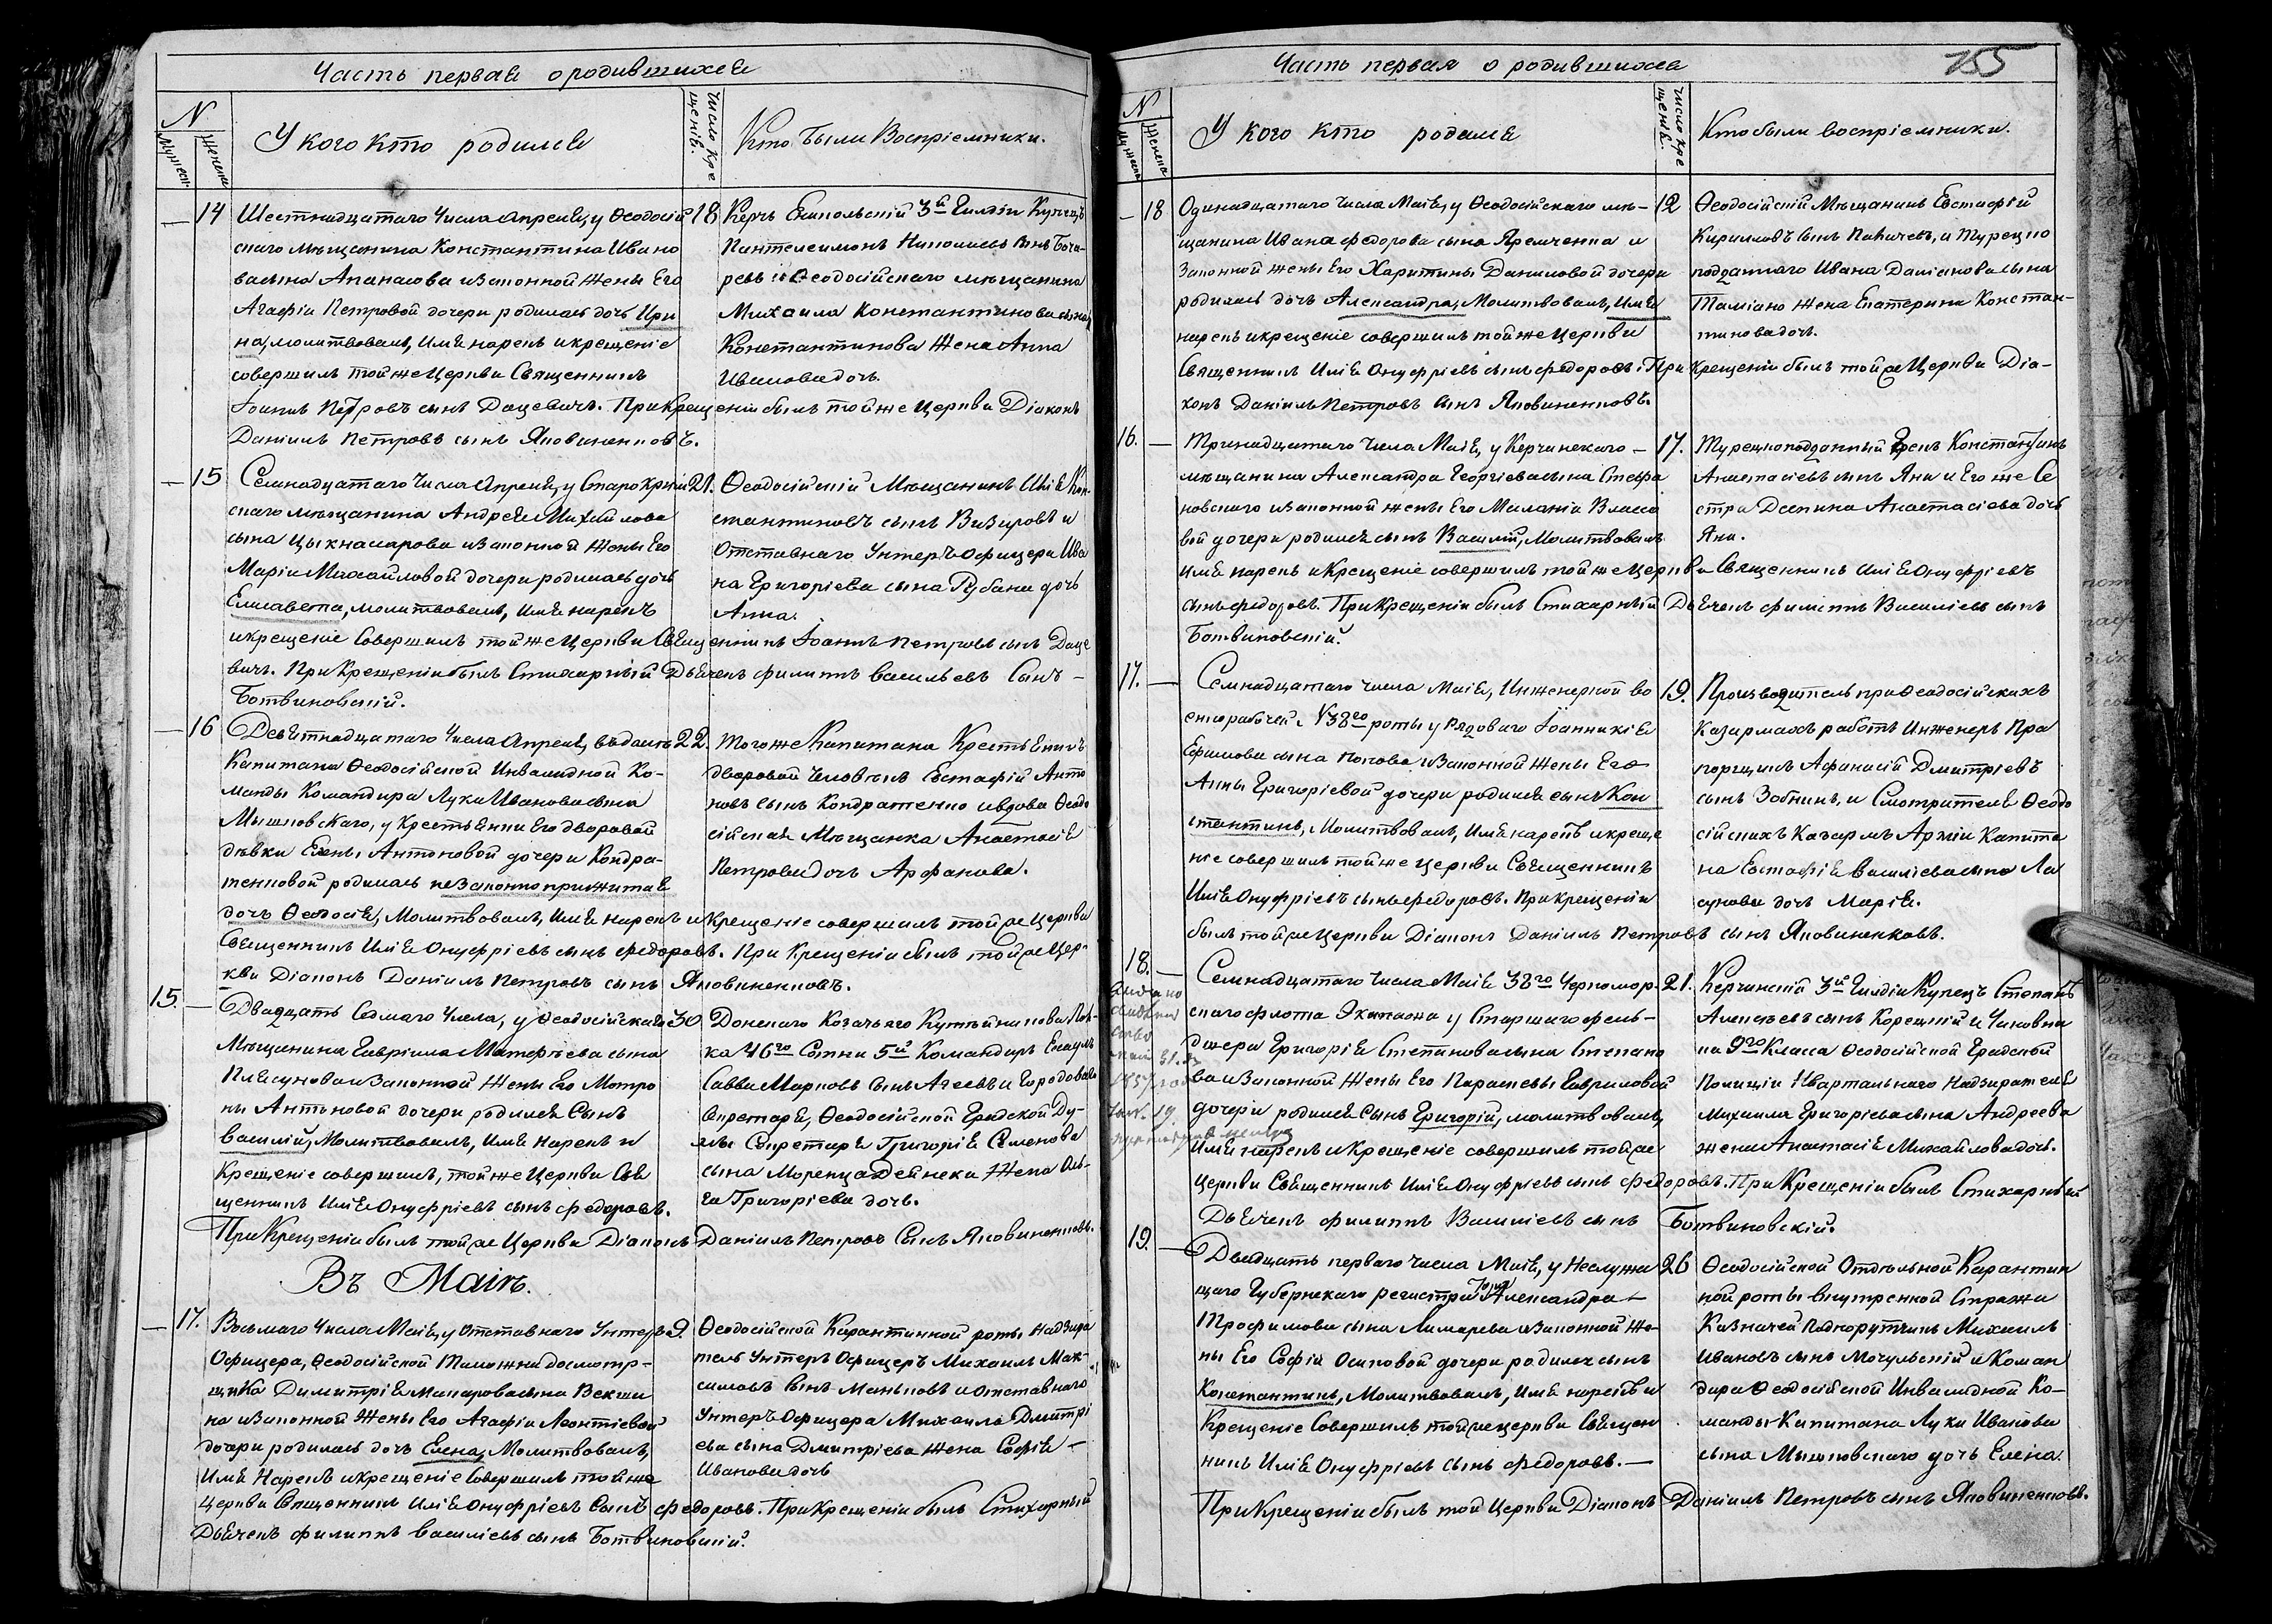 Часть первая о родившихся
N
Мужеск.
Женска
У кого кто родился
Число Кре
щенія.
Кто были Воспріемники.
— 14
Шестнадцатаго Числа Апреля, у Ѳеодосій
скаго мѣщанина Константина Ивано
ва сына Апанасова и законной жены Его
Агафіи Петровой дочери родилась дочь Ири
на, молитвовалъ, имя нарекъ и крещеніе
совершилъ той же Церкви Священникъ
Іоаннъ Петровъ сынъ Дацевичъ. При Крещеніи былъ той же Церкви Діаконъ
Даніилъ Петровъ сынъ Яновиненковъ.
18
Керчь Еникольскій 3й Гилдіи Купецъ
Пантелеимонъ Николаевъ сынъ Боча-
ревъ и Ѳеодосійскаго мѣщанина
Михаила Константинова сына
Константинова Жена Анна
Иванова дочь.
— 15
Семнадцатаго Числа Апреля, у Старокрым
скаго мѣщанина Андрея Михайлова
сына Цыкналарова и законной Жены Его
Маріи Михайловой дочери родилась дочь
Елисавета, молитвовалъ, имя нарекъ
и крещеніе Совершилъ той же Церкви Священникъ Іоаннъ Петровъ сынъ Даце
вичъ. При Крещеніи былъ Стихарный Дьячекъ Филиппъ Васильевъ Сынъ —
Ботвиновскій.
21.
Ѳеодосійскій Мѣщанинъ Илія Кон-
стантиновъ сынъ Визировъ и
Отставнаго Унтеръ Офицера Ива
на Григоріева сына Рубана дочь
Анна.
— 16
Девятнадцатаго Числа Апреля, въ дома
Капитана Ѳеодосійской Инвалидной Ко-
манды Командира Луки Иванова сына
Мышковскаго, у Крестьянки Его дворовой
дѣвки Елены Антоновой дочери Кондра-
тенковой родилась незаконно прижитая
дочь Ѳеодосія, Молитвовалъ, Имя нарекъ и Крещеніе совершилъ той же Церкви
Священникъ Илія Онуфріевъ сынъ Федоровъ. При Крещеніи былъ той же Цер-
кви Діаконъ Даніилъ Петровъ сынъ Яновиненковъ.
22.
Того же Капитана Крестьянинъ
дворовой Человекъ Евстафій Анто
новъ сынъ Кондратенко и вдова Ѳеодо
сійская Мѣщанка Анастасія
Петрова дочь Арфанова.
15. —
Двадцать Седмаго Числа, у Ѳеодосійскаго
Мѣщанина Гавріила Матфѣева сына
Плясунова и Законной Жены Его Матро
ны Антоновой дочери родился Сынъ
Василій, Молитвовалъ, Имя Нарекъ и
Крещеніе совершилъ, той же Церкви Свя
щенникъ Илія Онуфріевъ сынъ Федоровъ.
При Крещеніи былъ той же Церкви Діаконъ Даніилъ Петровъ Сынъ Яновиненковъ.
30
Донскаго Козачьяго Кутейникова Пол-
ка №6го Сотни 5й Командиръ Есаулъ
Савва Марковъ Сынъ Агеевъ и Городоваго
Секретаря, Ѳеодосійской Градской Ду-
мы Секретаря Григорія Семенова
сына Моренца Дейнеки Жена Оль-
га Григоріева дочь.
Въ Маіѣ.
— 17.
Восьмаго Числа Маія, у Отставнаго Унтеръ
Офицера, Ѳеодосійской Таможни досмотр-
щика Димитрія Макарова сына Векши
на и законной Жены Его Агафіи Леонтіевой
дочери родилась дочь Елена, Молитвовалъ,
Имя Нарекъ и крещеніе Совершилъ той же
Церкви Священникъ Илія Онуфріевъ Сынъ Федоровъ. При Крещеніи былъ Стихарный
Дьячекъ Филиппъ Василіевъ сынъ Ботвиновскій.
9.
Ѳеодосійской Карантинной роты Надзира
тель Унтеръ Офицеръ Михаилъ Мак-
симовъ Сынъ Маньковъ и отставнаго
Унтеръ Офицера Михаила Дмитрі
ева сына Дмитріева Жена Софія —
Иванова дочь
Часть первая о родившихся
155
N
Мужеск
Женска
У кого кто родился
число кре
щенія.
Кто были воспріемники.
— 18
Одинадцатаго Числа Маія, у Ѳеодосійскаго мѣ-
щанина Ивана Федорова сына Яремченка и
Законной жены Его Харитины Даниловой дочери
родилась дочь Александра, Молитвовалъ, имя
нарекъ и крещеніе совершилъ той же Церкви
Священникъ Илія Онуфріевъ сынъ Федоровъ. При Крещеніи былъ той же Церкви Діа-
конъ Даніилъ Петровъ Сынъ Яновиненковъ.
12
Ѳеодосійскій Мѣщанинъ Евстафій
Кирилловъ Сынъ Пахачевъ, и Турецко
подданнаго Ивана Даміанова сына
Таміано жена Екатерина Констан-
тинова дочь.
16. —
Тринадцатаго Числа Маія, у Керчинскаго —
мѣщанина Александра Георгіева сына Стефа
новскаго и законной жены Его Маланіи Власо
вой дочери родился сынъ Василій, Молитвовалъ
имя нарекъ и Крещеніе совершилъ той же Церкви Священникъ Илія Онуфріевъ
сынъ Федоровъ. При Крещеніи былъ Стихарный Дьячекъ Филиппъ Василіевъ сынъ
Ботвиновскій.
17.
Турецкоподданный Грекъ Константинъ
Анастасіевъ сынъ Яни и Его же Се
стра Деспина Анастасіева дочь
Яни.
17. —
Семнадцатаго числа Маія, Инженерной во
еннорабочей №38го роты у Рядоваго Іоанникія
Ефимова сына Попова и Законной Жены Его
Анны Григоріевой дочери родился сынъ Кон
стантинъ, Молитвовалъ, Имя нарекъ и креще
ніе совершилъ той же Церкви Священникъ
Илія Онуфріевъ сынъ Федоровъ. При крещеніи
былъ той же Церкви Діаконъ Даніилъ Петровъ сынъ Яновиненковъ.
19.
Производитель при Ѳеодосійскихъ
Казармахъ работъ Инженеръ Пра
порщикъ Афанасій Дмитріевъ
сынъ Зобнинъ, и Смотрителя Ѳеодо
сійскихъ Казармъ Арміи Капита
на Евстафія Василіева сына Ла
дочь Марія.
18. —
1857 года
Семнадцатаго Числа Маія 38го Черномор-
скаго флота Экипажа у Старшаго фель-
дшера Григорія Степанова сына Степано
ва и Законной Жены Его Параскевы Гавриловой
дочери родился Сынъ Григорій, молитвовалъ,
Имя нарекъ и Крещеніе совершилъ той же
Церкви Священникъ Илія Онуфріевъ сынъ Федоровъ. При Крещеніи былъ Стихарный
Дьячекъ Филиппъ Василіевъ сынъ Ботвиновскій.
21.
Керчинскій 3й Гилдіи Купецъ Степанъ
Алексѣевъ сынъ Корецкій и Чиновни
ка 9го Класса Ѳеодосійской Градской
Полиціи Квартальнаго Надзирателя
Михаила Григоріева сына Андреева
жена Анастасія Михайлова дочь.
19. —
Двадцать перваго Числа Маія, у Неслужа
щаго Губернскаго регистратора Александра —
Трофимова сына Лимарева и Законной Же-
ны Его Софіи Осиповой дочери родился сынъ
Константинъ, Молитвовалъ, имя нарекъ и
Крещеніе Совершилъ той же церкви Священ
никъ Илія Онуфріевъ Сынъ Федоровъ. —
При Крещеніи былъ той Церкви Діаконъ Даніилъ Петровъ сынъ Яновиненковъ.
26
Ѳеодосійской Отдѣльной Карантин
ной роты внутренной Стражи
Казначей Подпорутчикъ Михаилъ
Ивановъ сынъ Мочульскій и Коман
дира Ѳеодосійской Инвалидной Ко-
манды Капитана Луки Иванова
сына Мышковскаго дочь Елена.